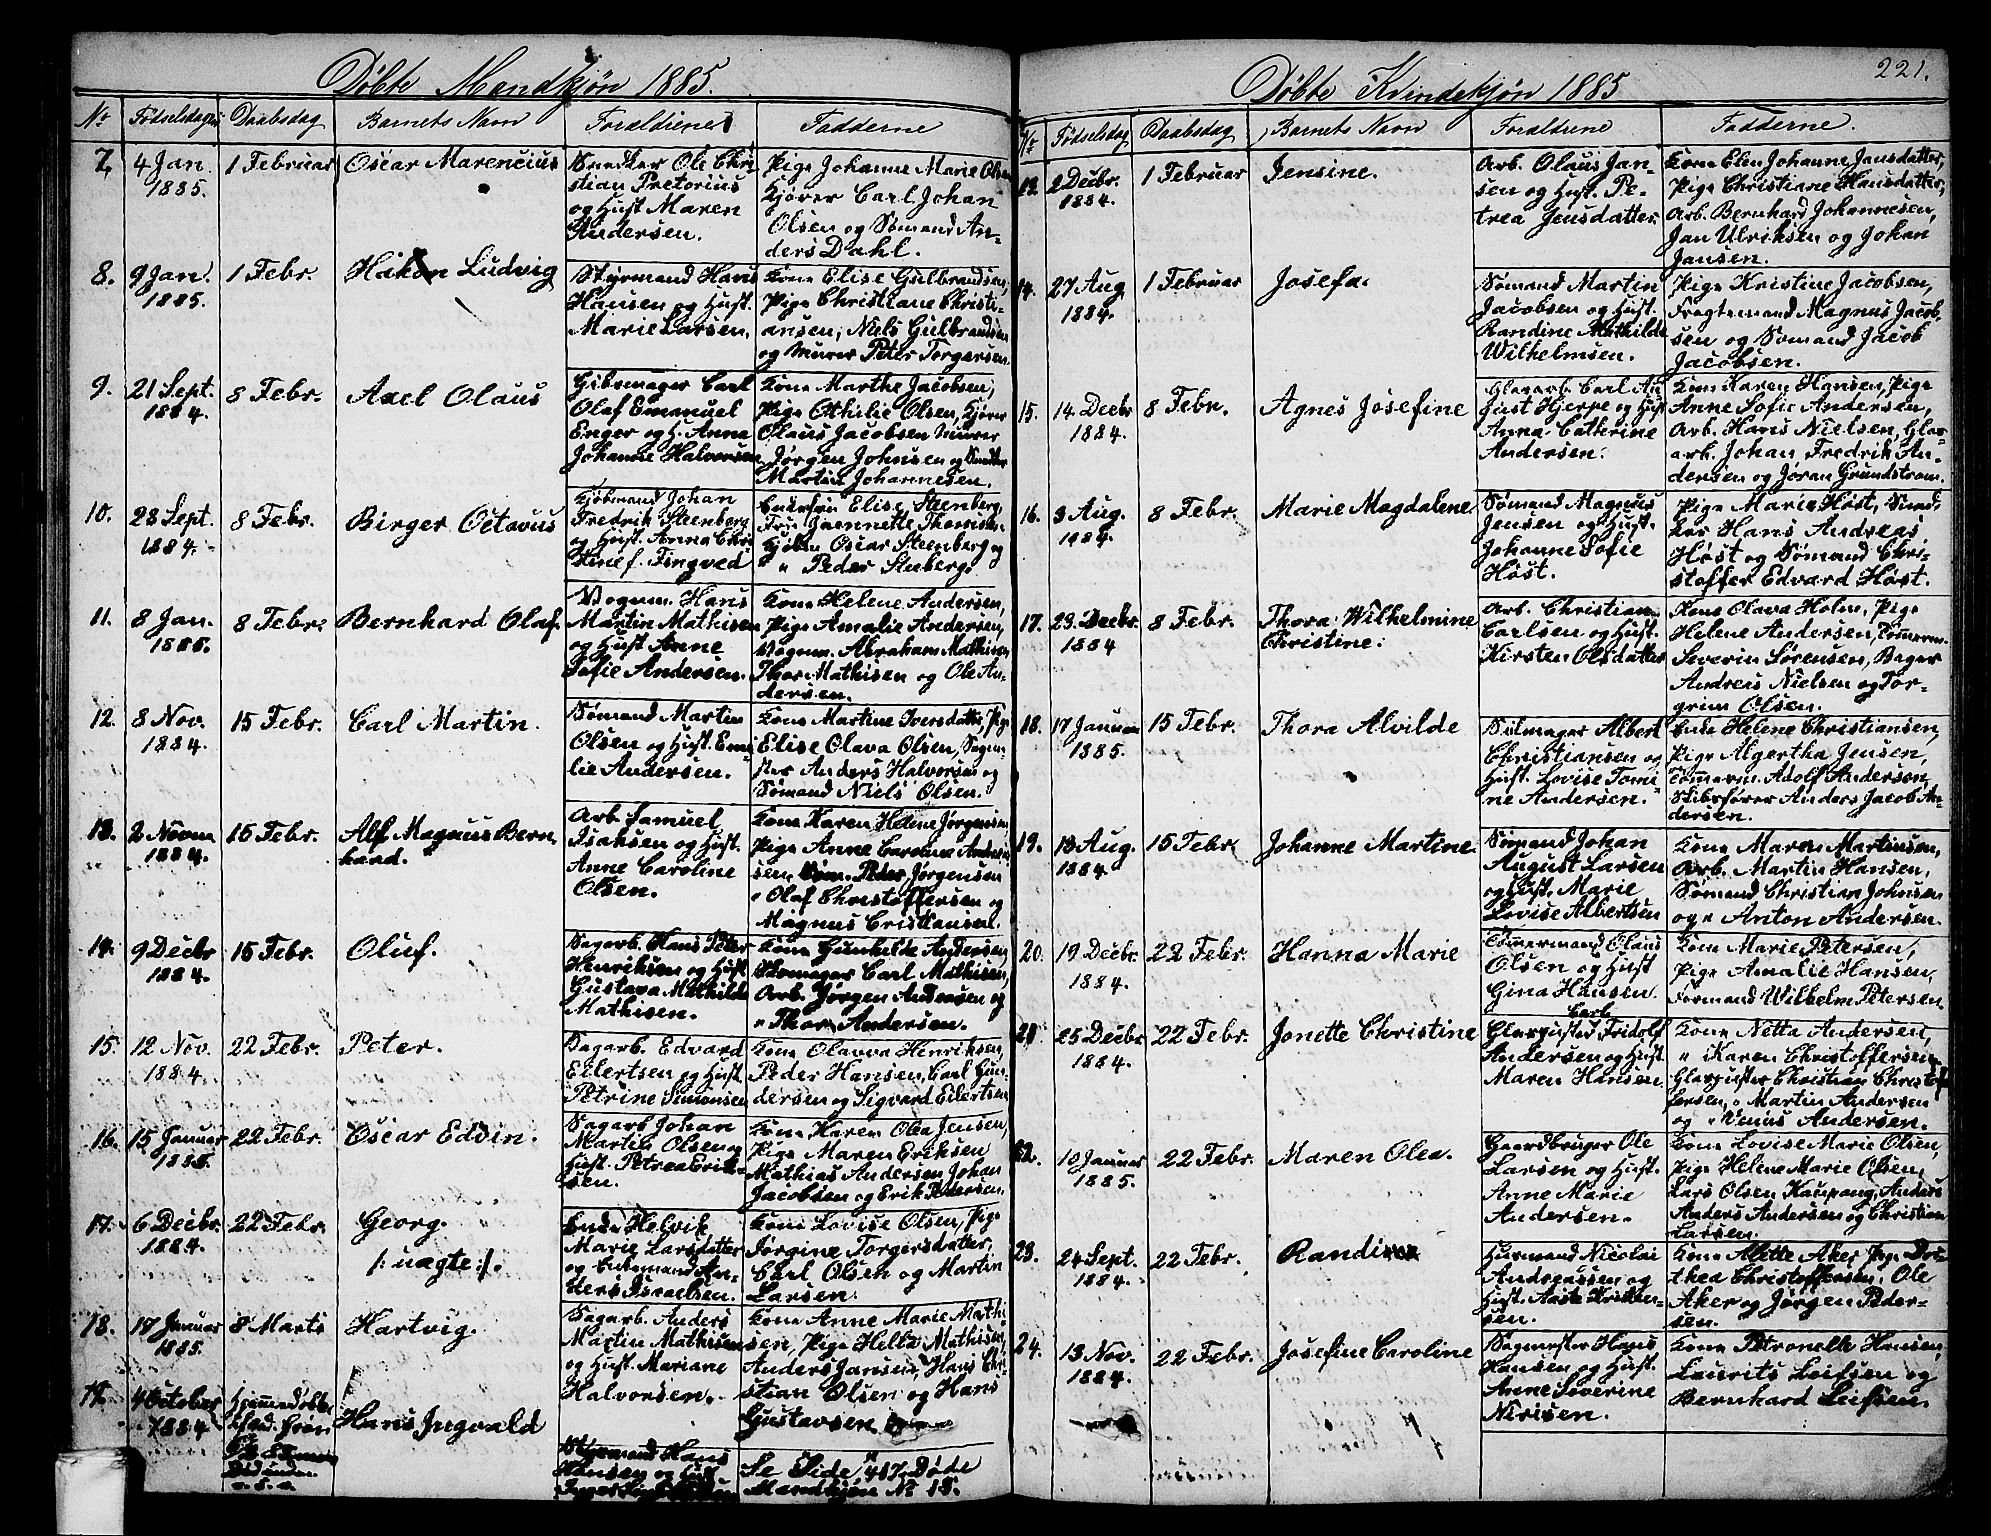 Døbte Mandkjøn 1885.
No Fødselsdag Daabsdag Barnets Navn Forældrene Fadderne
7. 4 Jan. 1885. 1 Februar Oscar Marencius
Snedker Ole Chri-
stian Pretorius
og Hust. Maren
Andersen.
Pige Johanne Marie Olsen
Kjører Carl Johan
Olsen og Sømand An-
ders Dahl.
8. 9 Jan. 1885. 1 Febr. Håkon Ludvig
Styrmand Hans
Hansen og Hust.
Marie Larsen.
Kone Elise Gulbrandsen,
Pige Christiane Christi-
ansen, Niels Gulbrandsen
og Murer Peter Torgersen.
9. 21 Sept. 1884. 8 Febr. Axel Olaus
Gibsmager Carl
Olaf Emanuel
Enger og H. Anna
Johanne Halvorsen
Kone Marthe Jacobsen,
Pige Othilie Olsen, Kjører
Olaus Jacobsen Murer
Jørgen Johnsen og
Martin Johannesen.
10. 28 Sept. 1884. 8 Febr. Birger Octavus
Kjøbmand Johan
Fredrik Steenberg
og Hust. Anna
Tingved
Enkefru Elise Steenberg
Fru Jeannette Thomsen
Kjøbm Oscar Steenberg og
" Peder Steenberg.
11. 8 Jan. 1885. 8 Febr. Bernhard Olaf.
Vognm. Hans
Martin Mathisen
og Hust. Anne
Sofie Andersen.
Kone Helene Andersen,
Pige Amalie Andersen,
Vognm. Abraham Mathisen
Thor Mathisen og Ole An-
dersen.
12. 8 Nov. 1884. 15 Febr. Carl Martin.
Sømand Martin
Olsen og Hust. Emi-
lie Andersen.
Kone Martine Iversdatter, Pige
Elise Olava Olsen,
Anders Halvorsen og
Sømand Niels Olsen.
13. 2 Novem 1884. 15 Febr. Alf Magnus Bern
hard.
Arb Samuel
Isaksen og Hust.
Anne Caroline
Olsen.
Kone Karen Helene Jørgensen
Pige Anne Caroline
sen, Søm. Peder Jørgensen
" Olaf Christoffersen og
Magnus Cristiansen.
14. 9 Decbr 1884. 15 Febr. Oluf.
Sagarb. Hans Peter
Henriksen og Hust
Gustava Mathilde
Mathisen.
Kone Gunhilde Andersen
Skomager Carl Mathisen,
Arb. Jørgen Andersen og
" Thor Andersen.
15. 12 Nov. 1884. 22 Febr. Peter.
Sagarb. Edvard
Eilertsen og Hust.
Petrine Simonsen
Kone Olava Henriksen,
Peder Hansen, Carl Gun-
dersen og Sigvard Eilertsen
16. 15 Januar 1885. 22 Febr. Oscar Edvin.
Sagarb Johan
Martin Olsen og
Hust. Petrea Erik-
sen.
Kone Karen Olea Jensen,
Pige Maren Eriksen
Mathias Andersen Johan
Jacobsen og Erik Petersen.
17. 6 Decbr. 1884. 22 Febr. Georg.
/: uægte :/.
Enke Helvik
Marie Larsdatter
og Enkemand An-
ders Israelsen.
Kone Lovise Olsen, Pige
Jørgine Torgersdatter,
Carl Olsen og Martin
Larsen.
18. 17 Januar 1885. 8 Marts Hartvig.
Sagarb. Anders
Martin Mathisen
og Hust. Mariane
Halvorsen.
Kone Anne Marie Mathi-
sen, Pige Hella Mathisen,
Anders Jansen, Hans Chri-
stian Olsen og Hans
Gustavsen.
19. 4 October 1884 Hjemmedøbt Hans Ingvald
Styrmand Hans
Hansen og Hust
Se Side 487. Døde
Mandkjøn No 13.
221.
Døbte Kvindekjøn 1885
No Fødselsdag Daabsdag Barnets Navn Forældrene Fadderne.
13. 2 Decbr. 1884. 1 Februar Jensine.
Arb. Olaus Jan-
sen og Hust. Pe-
trea Jensdatter
Kone Elen Johanne Jansdatter,
Pige Christiane Hansdatter,
Arb. Bernhard Johannesen,
Jan Ulriksen og Johan
Jansen.
14. 27 Aug 1884. 1 Februar Josefa.
Sømand Martin
Jacobsen og Hust.
Randine Mathilde
Wilhelmsen.
Pige Kristine Jacobsen,
Fragtemand Magnus Jacob-
sen og Sømand Jacob
Jacobsen.
15. 14 Decbr 1884. 8 Febr. Agnes Josefine
Glasarb. Carl Au-
gust Hjerpe og Hust
Anna Catherine
Andersen.
Kone Karen Hansen, Pige
Anne Sofie Andersen,
Arb. Hans Nielsen, Glas-
arb. Johan Fredrik An-
dersen og Jøran Grundstrøm.
16. 3 Aug. 1884. 8 Febr. Marie Magdalene
Sømand Magnus
Jensen og Hust.
Johanne Sofie
Høst.
Pige Marie Høst, Sned-
ker Hans Andreas
Høst og Sømand Chri-
stoffer Edvard Høst.
17. 23. Decbr. 1884 8 Febr. Thora Wilhelmine
Christine.
Arb. Christian
Carlsen og Hust.
Kirsten Olsdatter
Kone Olava Holm, Pige
Helene Andersen, Tømmerm.
Severin Sørensen, Bager
Andreas Nielsen og Tor-
grim Olsen.
18. 17 Januar 1885. 15 Febr. Thora Alvilde
Seilmager Albert
Christiansen og
Hust. Lovise Tomi-
ne Andersen.
Enke Helene Christiansen,
Pige Algertha Jensen,
Tømmerm. Adolf Andersen,
Skibsfører Anders Jacob An-
dersen.
19. 13 Aug. 1884. 15 Febr. Johanne Martine
Sømand Johan
August Larsen
og Hust. Marie
Lovise Albertsen
Kone Maren Martinsen,
Arb. Martin Hansen,
Sømand Christian Johnsen
og " Anton Andersen.
20. 19 Decbr. 1884. 22 Febr. Hanna Marie
Tømmermand Olaus
Olsen og Hust
Gina Hansen.
Kone Marie Petersen,
Pige Amalie Hansen,
Formand Wilhelm Petersen.
21 25 Decbr 1884. 22 Febr. Jonette Christine
Carl
Glaspuster Fridolf
Andersen og Hust.
Maren Hansen.
Kone Netta Andersen,
" Karen Christoffersen,
Glaspuster Christian Christof-
fersen, " Martin Andersen
og " Venus Andersen.
22. 10 Januar 1885. 22 Febr. Maren Olea.
Gaardbruger Ole
Larsen og Hust.
Anne Marie
Andersen.
Kone Lovise Marie Olsen,
Pige Helene Marie Olsen,
Lars Olsen Kaupang, Anders
Anders Andersen og Christian
Larsen.
23. 24 Sept. 1884. 22 Febr. Randine
Husmand Nicolai
Andreassen og
Hust. Aaste Kristian-
sen.
Kone Alette Aker, Pige Do-
thea Christoffersen, Ole
Aker og Jørgen Peder-
sen.
24. 13 Nov. 1884. 22 Febr. Josefine Caroline
Sagmester Hans
Hansen og Hust.
Anne Severine
Nirisen.
Kone Petronelle Hansen,
Laurits Leifsen og
Bernhard Leifsen.